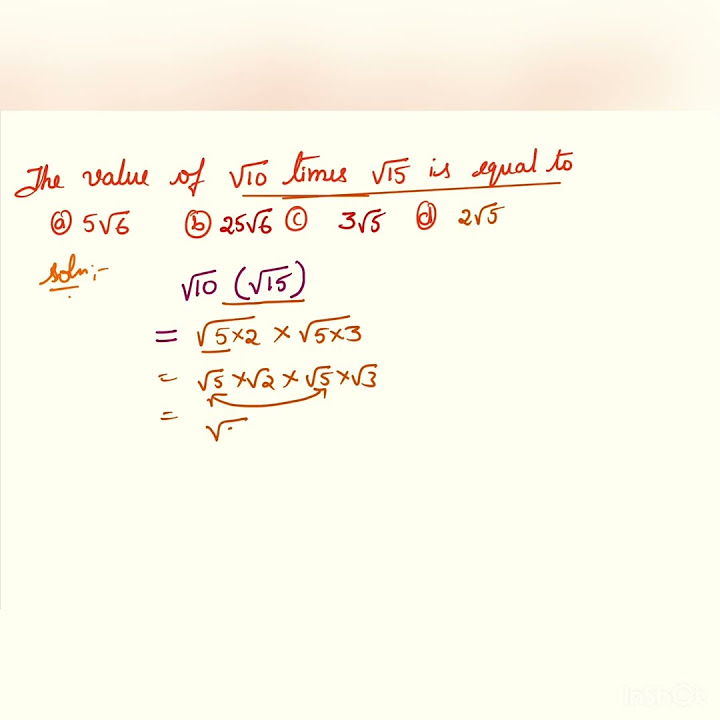 The value of √10 times √15 is equal to
ⓐ 5√6 ⓑ 25√6 ⓒ 3√5 ⓓ 2√5
soln:-
√10 (√15)
= √5×2 × √5×3
= √5 × √2 × √5 × √3
= √
InShOt